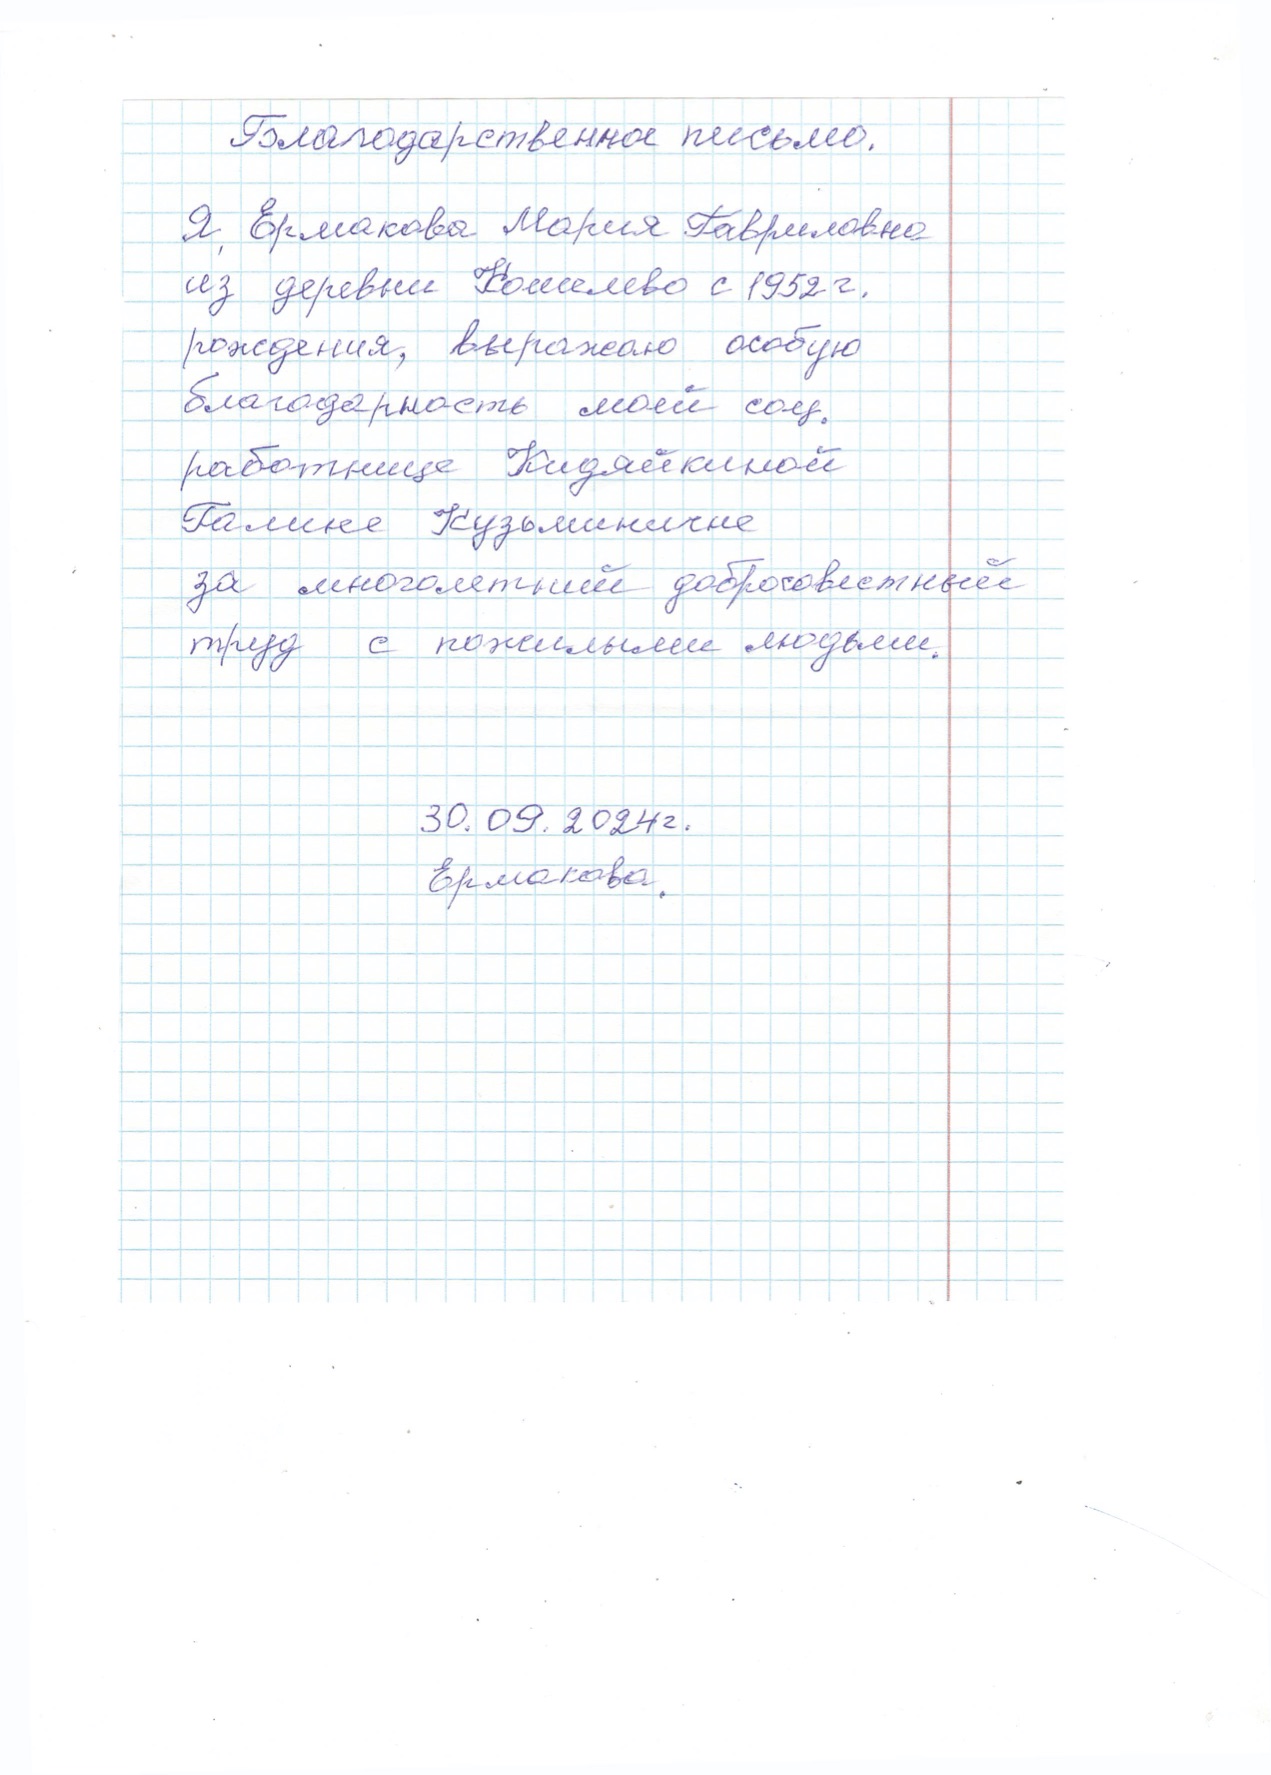 Благодарственное письмо.
Я, Ермакова Мария Гавриловна
из деревни Кошелево с 1952 г.
рождения, выражаю особую
благодарность моей соц.
работнице Кидяйкиной
Галине Кузьминичне
за многолетний добросовестный
труд с пожилыми людьми.
30.09.2024г.
Ермакова.